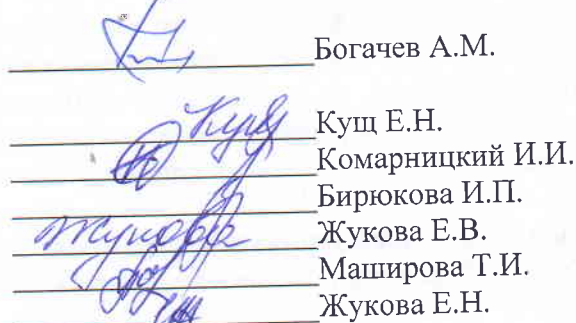 Богачев А.М.
Кущ Е.Н.
Комарницкий И.И.
Бирюкова И.П.
Жукова Е.В.
Маширова Т.И.
Жукова Е.Н.